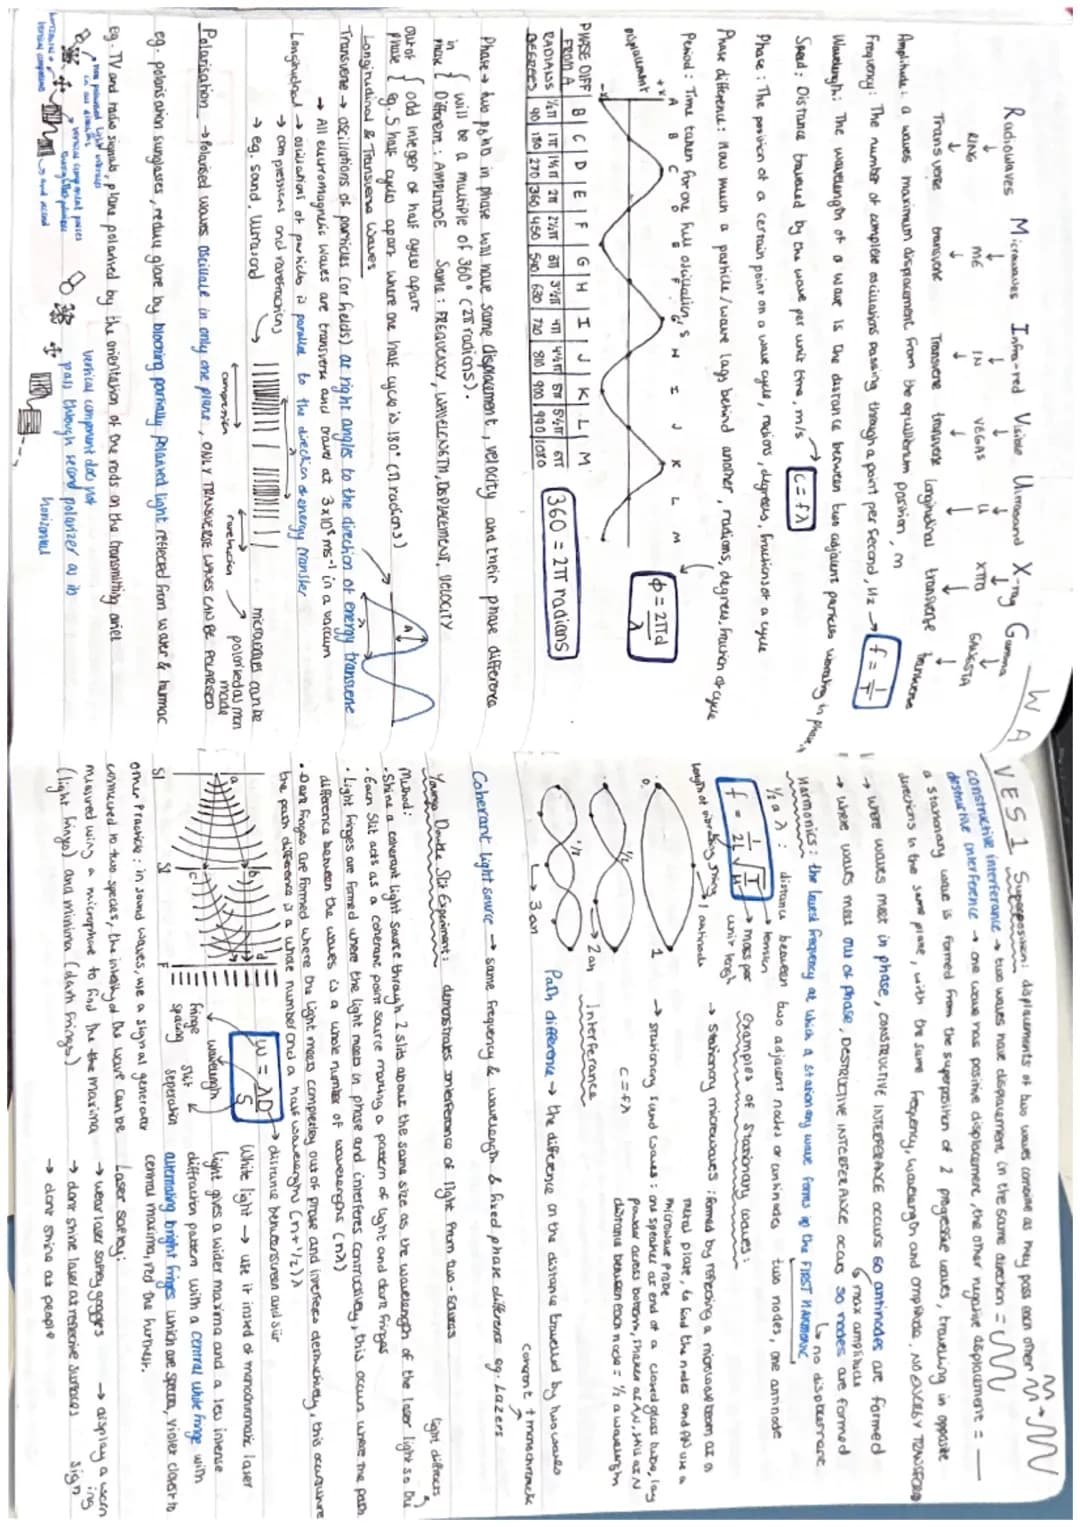 WAVES 1
Radiowaves Microwaves Infra-red Visible Ultrasound X-ray Gamma
RING ME IN VEGAS U XTRA GANGSTA
Transverse transverse Transverse transverse longitudinal transverse transverse
Amplitude: a waves maximum displacement from the equilibrium position, m
Frequency: The number of complete oscillations passing through a point per second, Hz → f = 1/T
Wavelength: The wavelength of a wave is the distance between two adjacent particles vibrating in phase,
Speed: Distance travelled by the wave per unit time, m/s → c = fλ
Phase: The position of a certain point on a wave cycle, radians, degrees, fraction of a cycle
Phase difference: How much a particle/wave lags behind another, radians, degrees, fraction of cycle
Period: Time taken for one full oscillation, s
φ = 2πd/λ
A B C D E F G H I J K L M
displacement
PHASE DIFF FROM A | B | C | D | E | F | G | H | I | J | K | L | M
RADIANS ½π 1π 1½π 2π 2½π 3π 3½π 4π 4½π 5π 5½π 6π
DEGREES 90 180 270 360 450 540 630 720 810 900 990 1080
360 = 2π radians
Phase → two points in phase will have same displacement, velocity and their phase difference
in phase { will be a multiple of 360° (2π radians).
{ Different: AMPLITUDE Same: FREQUENCY, WAVELENGTH, DISPLACEMENT, VELOCITY
out of phase { odd integer of half cycles apart
{ eg. 5 half cycles apart where one half cycle is 180° (π radians)
Longitudinal & Transverse Waves
Transverse → oscillations of particles (or fields) at right angles to the direction of energy transverse
→ All electromagnetic waves are transverse and travel at 3×10⁸ ms⁻¹ in a vacuum
Longitudinal → oscillations of particles is parallel to the direction of energy transfer
→ compressions and rarefractions
→ eg. sound, ultrasound
compression rarefraction
microwaves can be
polarised as man
made
Polarisation → Polarised waves oscillate in only one plane, ONLY TRANSVERSE WAVES CAN BE POLARISED
eg. polarisation sunglasses, reduce glare by blocking partially polarised light reflected from water & tarmac
eg. TV and radio signals, plane polarised by the orientation of the rods on the transmitting ariel
non polarised light vibrates
in all directions
vertical component passes
vertical component does not
pass through second polarizer as its
horizontal
Superposition: displacements of two waves combine as they pass each other
constructive interference → two waves have displacement in the same direction =
destructive interference → one wave has positive displacement, the other negative displacement =
a stationary wave is formed from the superposition of 2 progressive waves, travelling in opposite
directions in the same plane, with the same frequency, wavelength and amplitude. NO ENERGY TRANSFER
→ where waves meet in phase, CONSTRUCTIVE INTERFERANCE occurs so antinodes are formed
max amplitude
→ where waves meet out of phase, DESTRUCTIVE INTERFERANCE occurs so nodes are formed
no displacement
Harmonics: the lowest frequency at which a stationary wave forms is the FIRST HARMONIC
½ a λ: distance between two adjacent nodes or antinodes - two nodes, one antinode
f = 1/2l √T/μ
tension
mass per
unit length
length of vibrating string
1 antinode
1
1/2
2 an
1/3
3 an
examples of stationary waves:
→ stationary microwaves: formed by reflecting a microwave beam at a
metal plate, to find the nodes and AN use a
microwave probe
→ stationary sound waves: one speaker at end of a closed glass tube, lay
powder across bottom, shaken at AN, still at N
distance between each node = ½ a wavelength
c = fλ
Interference
Path difference → the difference in the distance travelled by two waves
coherent + monochromatic
Coherant light source → same frequency & wavelength & fixed phase difference eg. Lazers
Youngs Double Slit Experiment: demonstrates interference of light from two-sources
Method:
light diffracts
• Shine a coherent light source through 2 slits about the same size as the wavelength of the laser light so the
• Each slit acts as a coherent point source making a pattern of light and dark fringes
• Light fringes are formed where the light meets in phase and interferes constructively, this occurs where the path
difference between the waves is a whole number of wavelengths (nλ)
• Dark fringes are formed where the light meets completely out of phase and interferes destructively, this occurs where
the path difference is a whole number and a half wavelengths (n+½)λ
S1 S1 F
a b c d
fringe
spacing
wavelength
slit
seperation
w = λD/s
→ distance between screen and slit
White light → use it instead of monochromatic laser
light gives a wider maxima and a less intense
diffraction pattern with a central white fringe with
alternating bright fringes which are spectra, violet closer to
central maxima, red the furthest.
other Practice: in sound waves, use a signal generator
connected to two speakers, the intensity of the wave can be
measured using a microphone to find the the maxima
(light fringes) and minima (dark fringes)
Laser safety:
→ wear laser safety goggles
→ dont shine laser at reflective surfaces
→ dont shine at people
→ display a warning
sign